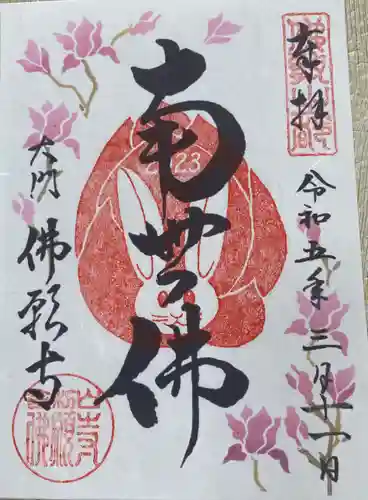 奉拝
令和五年三月十一日
南無佛
2023
大門
佛願寺
佛願寺